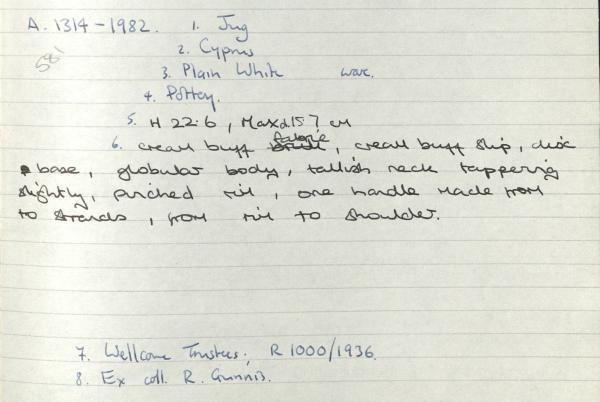 A. 1314-1982. 1. Jug
581
2. Cyprus
3. Plain White ware.
4. Pottey.
5. H 22.6, Max d. 15 7 cm
6. cream buff fabric, cream buff slip, disc
base, globular body, tallish neck tappering
slightly, pinched rim, one handle made from
to strands, from rim to shoulder.
7. Wellcome Trustees; R 1000/1936.
8. Ex coll. R. Gunnis.